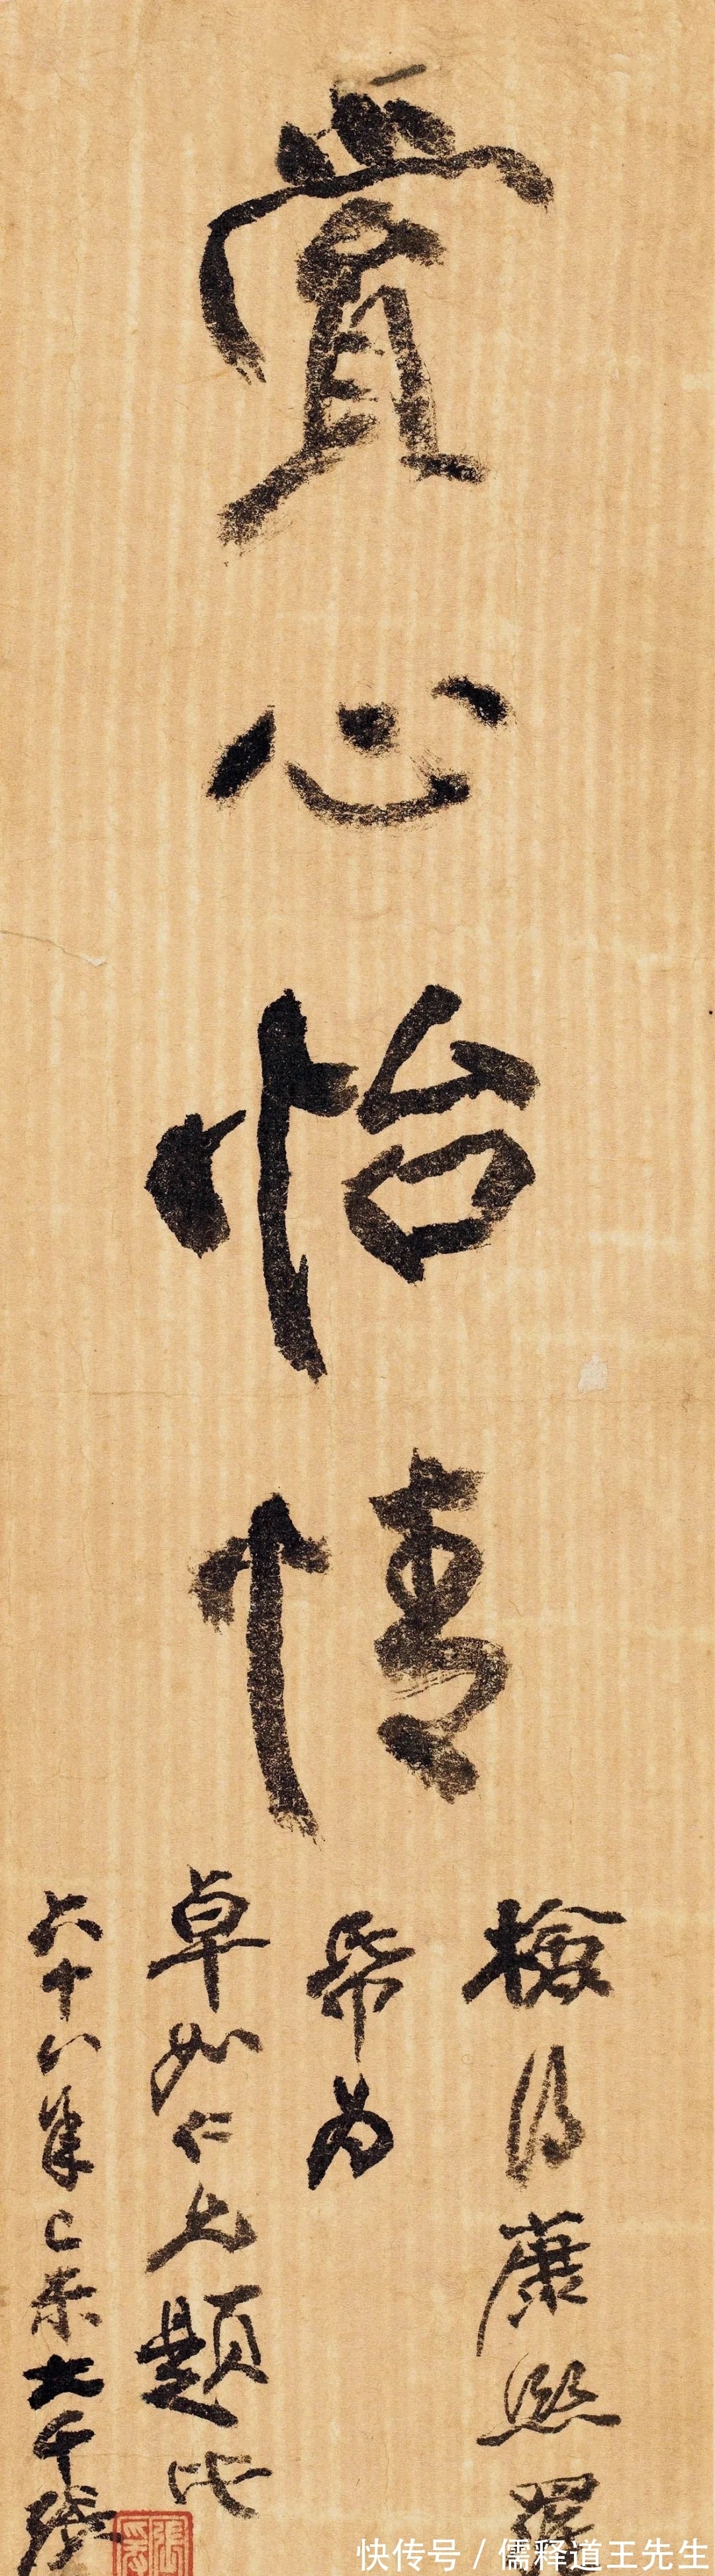 賞心怡情
檢得康熙羅
帋為
卓如仁兄題此
六十八年己未大千張
快传号 / 儒释道王先生